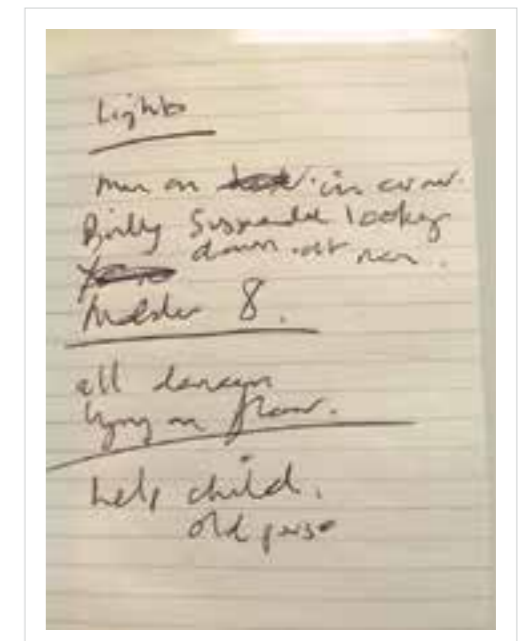 Lights
man on in corner.
Billy Suspended looking
down at man.
8.
all dancers
lying on floor.
help child.
old perso